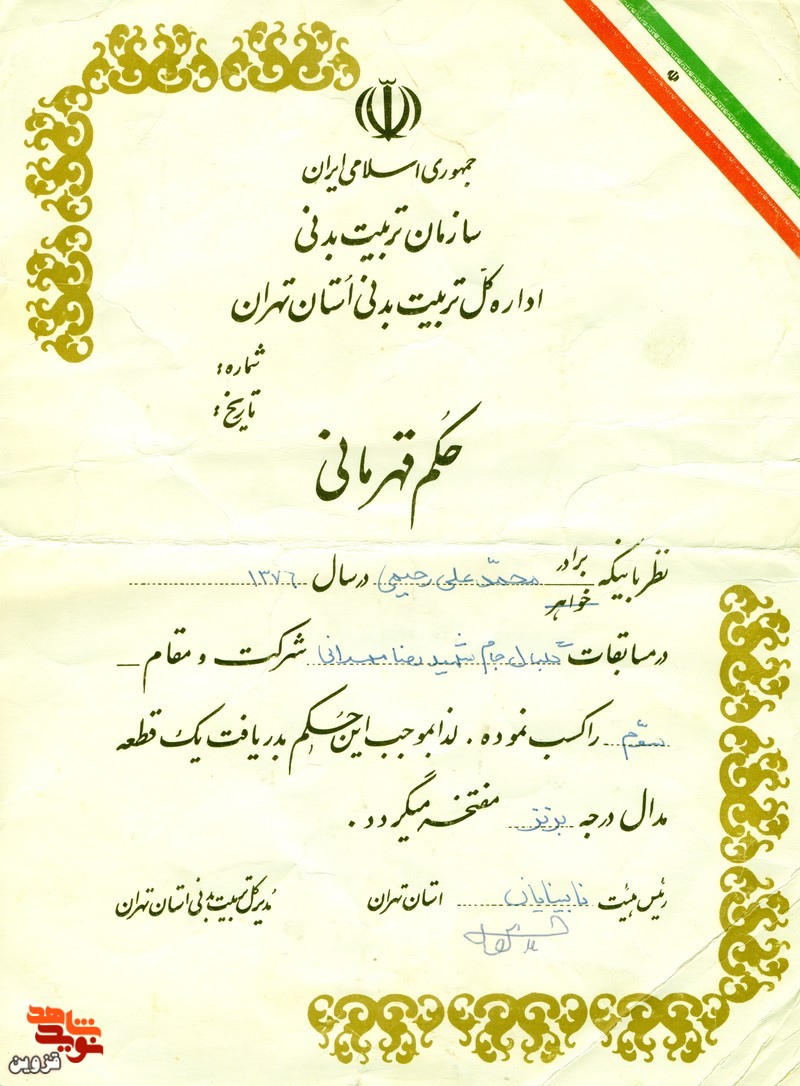 جمهوری اسلامی ایران
سازمان تربیت بدنی
اداره کلّ تربیت بدنی اُستان تهران
شماره:
تاریخ:
حکم قهرمانی
نظر باینکه برادر خواهر محمّد علی رحیمی در سال ۱۳۷۶
در مسابقات گلبال جام شهید رضا مهرانی شرکت و مقام
سوّم را کسب نموده . لذا بموجب این حُکم بدریافت یک قطعه
مدال درجه برنز مفتخر میگردد .
رئیس هیئت نابینایان استان تهران
مدیر کل تربیت بدنی استان تهران
نوید شاهد
قزوین